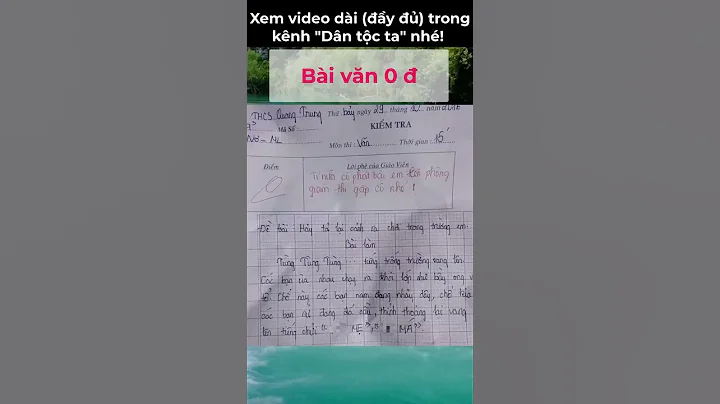 Xem video dài (đầy đủ) trong
kênh "Dân tộc ta" nhé!
Bài văn 0 đ
THCS Quang Trung Thứ bảy ngày 29 tháng năm
Mã Số KIỂM TRA
Môn thi: Văn Thời gian: 15'
Điểm Lời phê của Giáo Viên
Tí nữa cô phát bài em phòng
giám thị gặp cô nhé!
Đề bài: Hãy tả lại cảnh ra chơi trong trường em.
Bài làm
Tùng Tùng Tùng... tiếng trống trường vang lên.
Các bạn ùa nhau chạy ra khỏi lớp như bầy ong v
tổ. Chỗ này các bạn nam đang nhảy dây, chỗ kia
các bạn nữ đang đá cầu, thỉnh thoảng lại vang
lên tiếng chửi "... MẸ", " MÁ".